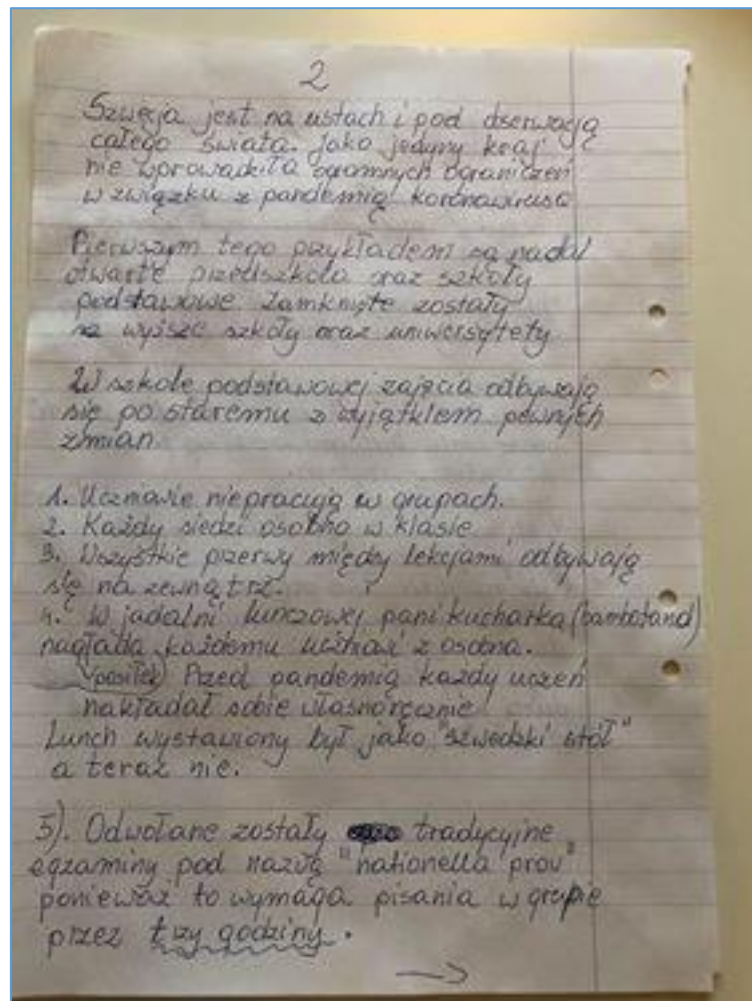 2
Szwecja jest na ustach i pod obserwacją
całego świata. Jako jedyny kraj
nie wprowadziła ogromnych ograniczeń
w związku z pandemią koronawirusa
Pierwszym tego przykładem są nadal
otwarte przedszkola oraz szkoły
podstawowe. Zamknięte zostały
wyższe szkoły oraz uniwersytety
W szkole podstawowej zajęcia odbywają
się po staremu z wyjątkiem pewnych
zmian.
1. Uczniowie niepracują w grupach.
2. Każdy siedzi osobno w klasie
3. Wszystkie przerwy między lekcjami odbywają
się na zewnątrz.
4. W jadalni lunczowej pani kucharka
nakłada każdemu z osobna.
posiłek Przed pandemią każdy uczeń
nakładał sobie własnoręcznie
Lunch wystawiony był jako "szwedzki stół"
a teraz nie.
5). Odwołane zostały tradycyjne
egzaminy pod nazwą "nationella prov"
ponieważ to wymaga pisania w grupie
przez trzy godziny.